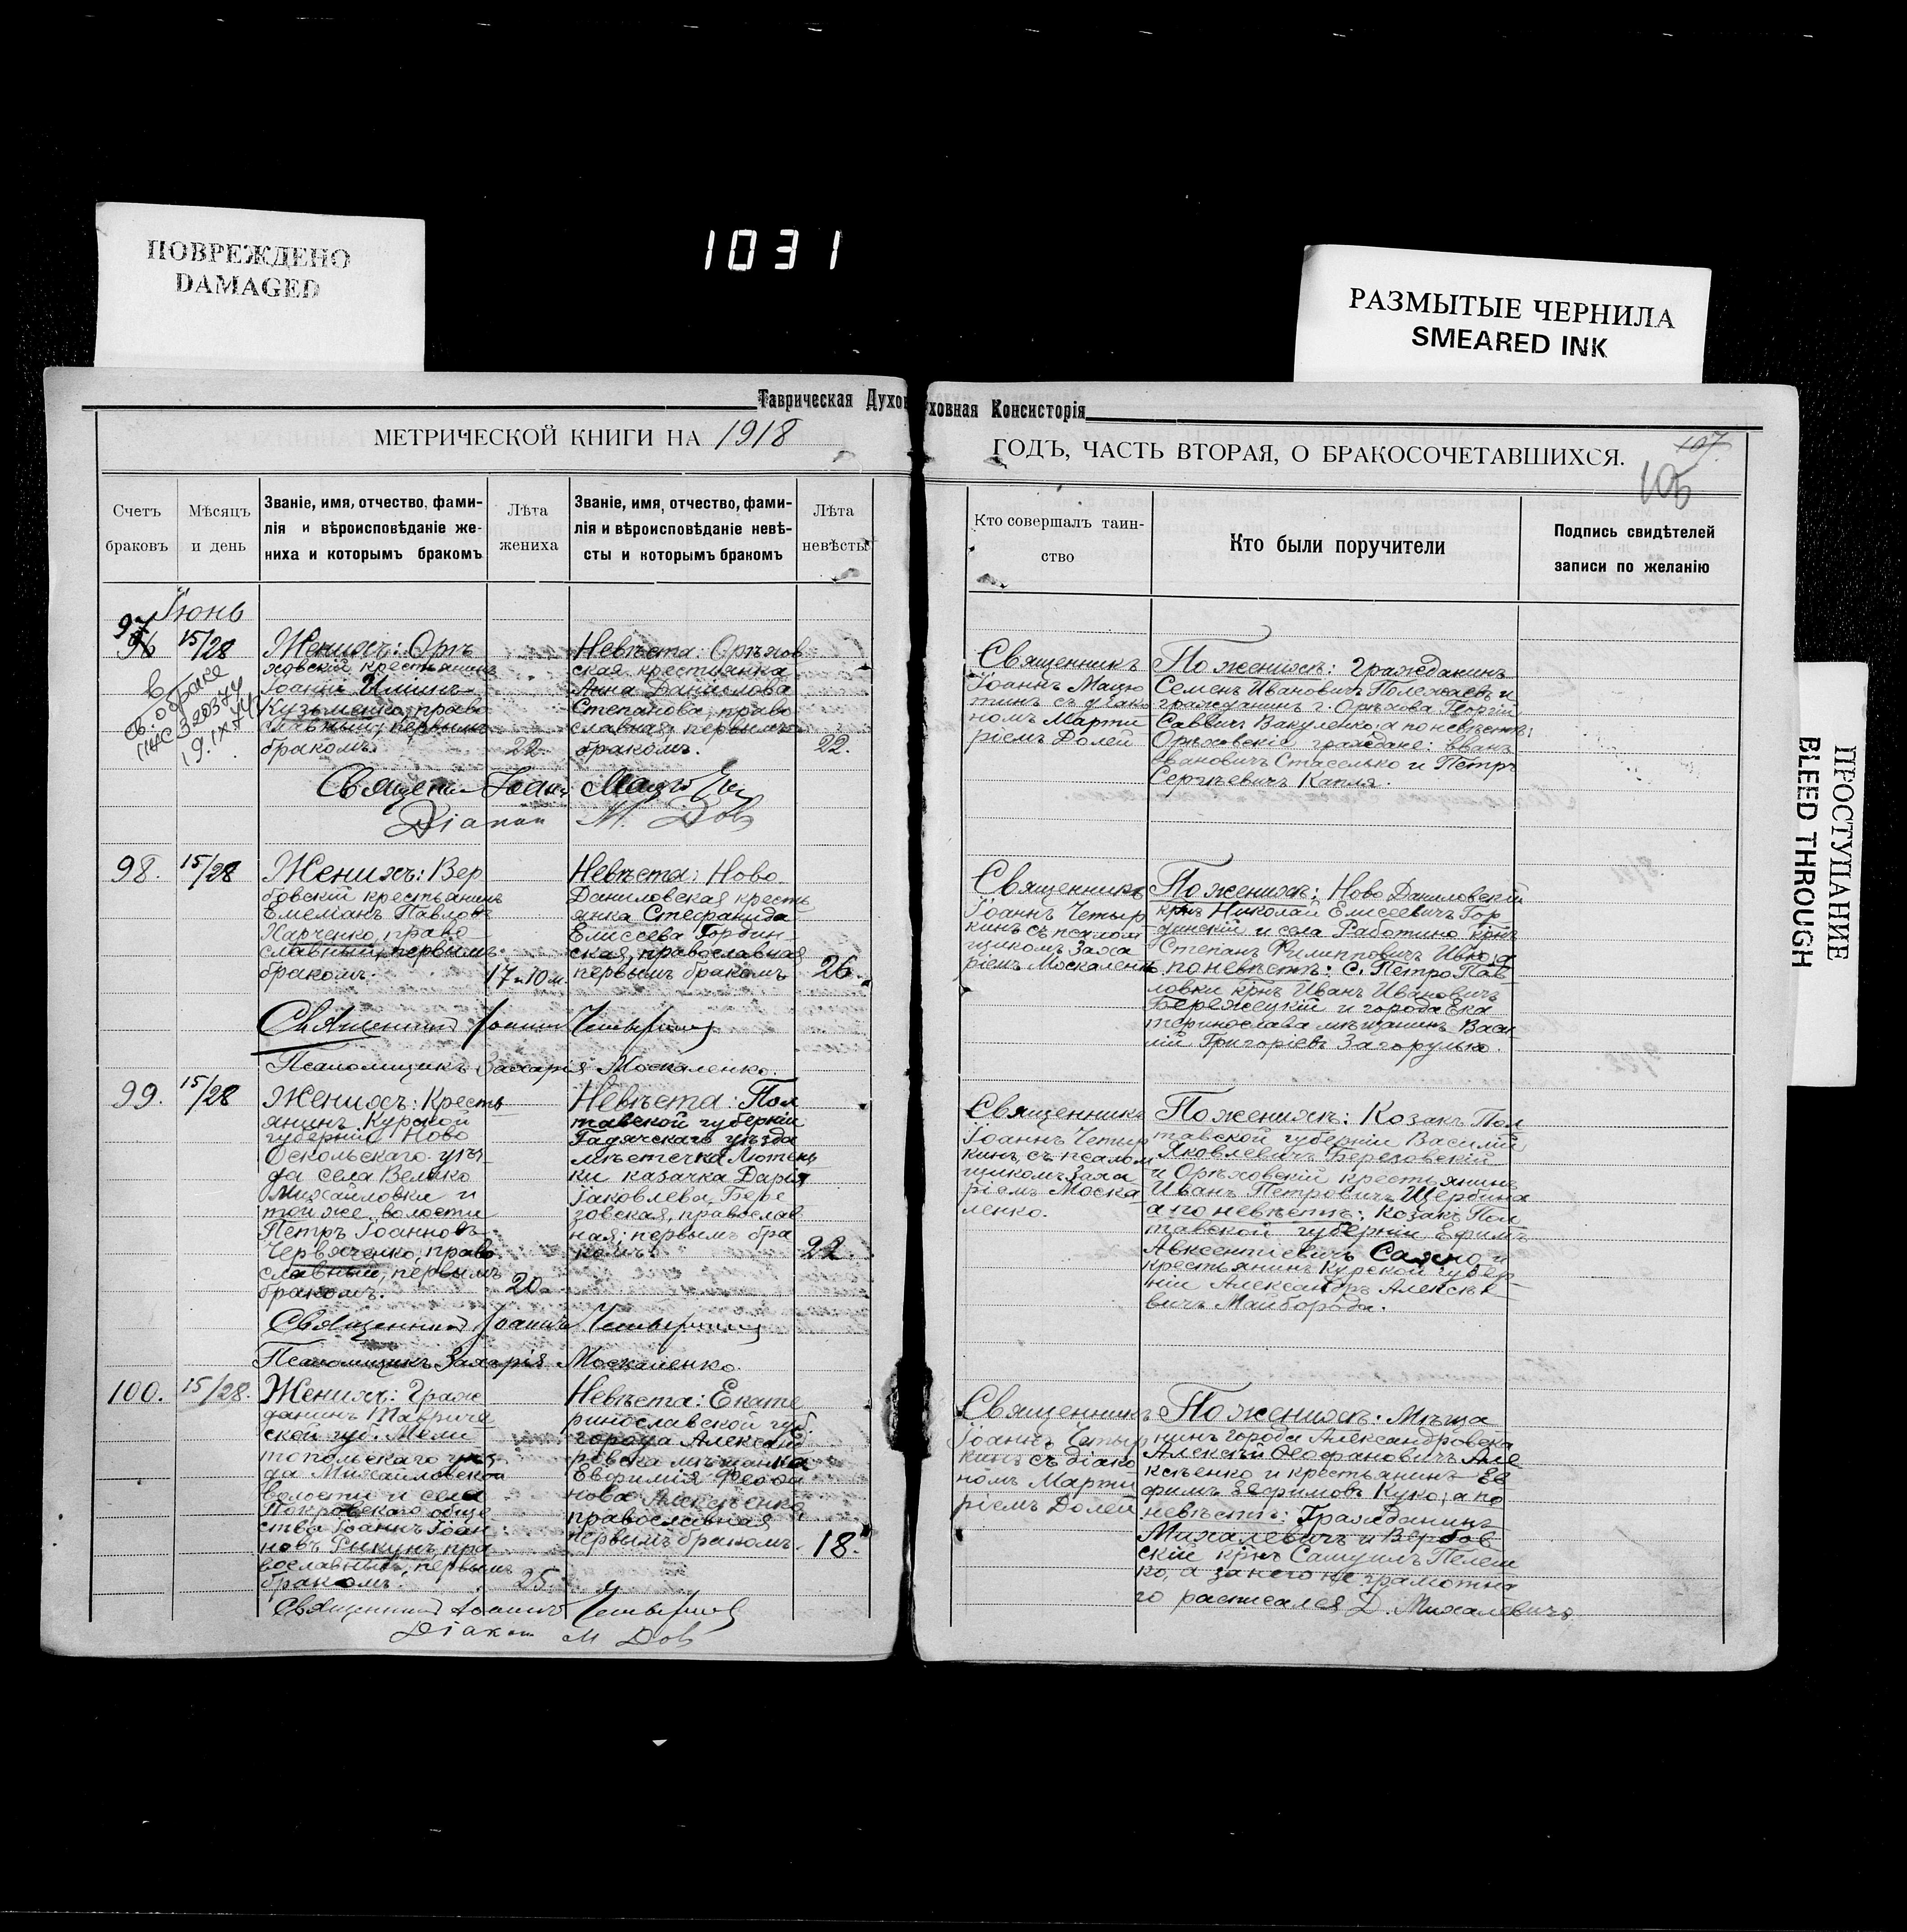 1031
ПОВРЕЖДЕНО
DAMAGED
РАЗМЫТЫЕ ЧЕРНИЛА
SMEARED INK
ПРОСТУПАНИЕ
BLEED THROUGH
Таврическая Духов
уховная Консисторія
МЕТРИЧЕСКОЙ КНИГИ НА 1918
ГОДЪ, ЧАСТЬ ВТОРАЯ, О БРАКОСОЧЕТАВШИХСЯ.
107
106
Счетъ
браковъ
Мѣсяцъ
и день
Званіе, имя, отчество, фами-
лія и вѣроисповѣданіе же-
ниха и которымъ бракомъ
Лѣта
жениха
Званіе, имя, отчество, фами-
лія и вѣроисповѣданіе невѣ-
сты и которымъ бракомъ
Лѣта
невѣсты
Кто совершалъ таин-
ство
Кто были поручители
Подпись свидѣтелей
записи по желанію
Іюнь
97
96
15/28
Женихъ: Орѣ
ховскій крестьянинъ
Іоаннъ Илiинъ
Кузьменко, право
славный, первымъ
бракомъ.
22
Невѣста: Орѣхов
ская крестьянка
Анна Данилова
Степанова, право
славная, первымъ
бракомъ.
22.
Священникъ
Іоаннъ Мацю
тинъ съ діако
номъ Марти
ріемъ Долей
По женихѣ: гражданинъ
Семенъ Ивановичъ Полежаевъ и
гражданинъ г. Орѣхова Георгій
Саввичъ Вакуленко, а по невѣстѣ:
Орѣховскіе граждане: Иванъ
Ивановичъ Стаселько и Петръ
Сергѣевичъ Капля.
св. о браке
9.IX.74
Іоаннъ
Діаконъ М. Дол
98.
15/28
Женихъ: Вер
бовскій крестьянинъ
Павловъ
Харченко, право
славный, первымъ
бракомъ.
17 и 10 м.
Невѣста: Ново
Даниловская кресть
янка Стефанида
Елисеева Гордин
ская, православная
первымъ бракомъ
26.
Священникъ
Іоаннъ Четыр
кинъ съ псалом
щикомъ Заха
ріемъ Москаленк
По женихѣ: Ново Даниловскій
крнъ Николай Елисеевичъ Гор
динскій и села Работино крнъ
Степанъ Филипповичъ Ивко, а
по невѣстѣ: с. Петро Пав
ловки крнъ Иванъ Ивановичъ
Бережецкій и города Ека
теринослава мѣщанинъ Васи
лій Григоріевъ Загорулько.
Священникъ Іоаннъ Четыркинъ
Псаломщикъ Захарія Москаленко.
99.
15/28
Женихъ: Кресть
янинъ Курской
губерніи Ново
Оскольскаго уѣз
да села Велико
Михайловки и
той же волости
Петръ Іоанновъ
Червяченко, право
славный, первымъ
бракомъ.
20.
Невѣста: Пол
тавской губерніи
Гадячскаго уѣзда
мѣстечка Лютень
ки казачка Дарія
Іаковлева Бере
зовская, православ
ная; первымъ бра
комъ.
22.
Священникъ
Іоаннъ Четыр
кинъ, съ псалом
щикомъ Заха
ріемъ Моска
ленко.
По женихѣ: Козакъ Пол
тавской губерніи Василій
Яковлевичъ Березовскій
и Орѣховскій крестьянинъ
Иванъ Петровичъ Щербина
а по невѣстѣ: Козакъ Пол
тавской губерніи Ефимъ
Авксентіевичъ Саяно и
крестьянинъ Курской губер-
ніи Александръ Алексѣе
вичъ Майборода.
Священникъ Іоаннъ Четыркинъ
Псаломщикъ Захарія Москаленко.
100.
15/28.
Женихъ: Граж
данинъ Тавриче
ской губ. Мели
топольскаго уѣз
да Михайловской
волости и села
Покровскаго обще
ства Іоаннъ Іоан
новъ Рикунъ, пра
вославный, первымъ
бракомъ.
25.
Невѣста: Екате
ринославской губ.
города Александ
ровска мѣщанка
Евфимія Феофа
нова Алексѣенко
православная
первымъ бракомъ.
18.
Священникъ
Іоаннъ Четыр
кинъ съ діако
номъ Марти
ріемъ Долей
По женихѣ: Мѣща
нинъ города Александровска
Алексѣй Феофановичъ Але
ксѣенко и крестьянинъ Ев
фимъ Евфимовъ Куко; а по
невѣстѣ: Гражданинъ
Михалевичъ и Вербов
скій крнъ Самуилъ Пелеш
ко, а за него не грамотна
го расписался Д. Михалевичъ.
Священникъ Іоаннъ Четыркинъ
Діаконъ М Дол